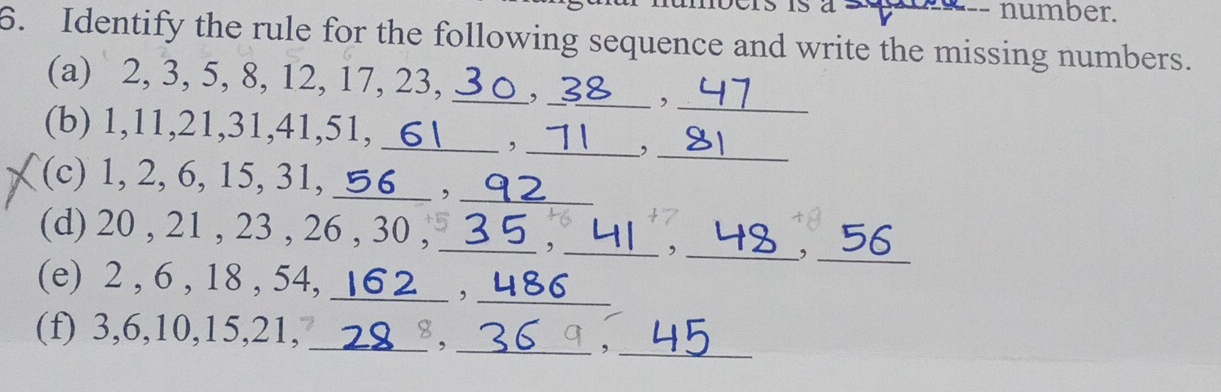 numbers is a square number.
6. Identify the rule for the following sequence and write the missing numbers.
(a) 2, 3, 5, 8, 12, 17, 23, 30, 38, 47
(b) 1,11,21,31,41,51, 61, 71, 81
X (c) 1, 2, 6, 15, 31, 56, 92
(d) 20 , 21 , 23 , 26 , 30 , +5 35, +6 41, +7 48, +8 56
(e) 2 , 6 , 18 , 54, 162, 486
(f) 3,6,10,15,21, 7 28 8, 36 9, 45